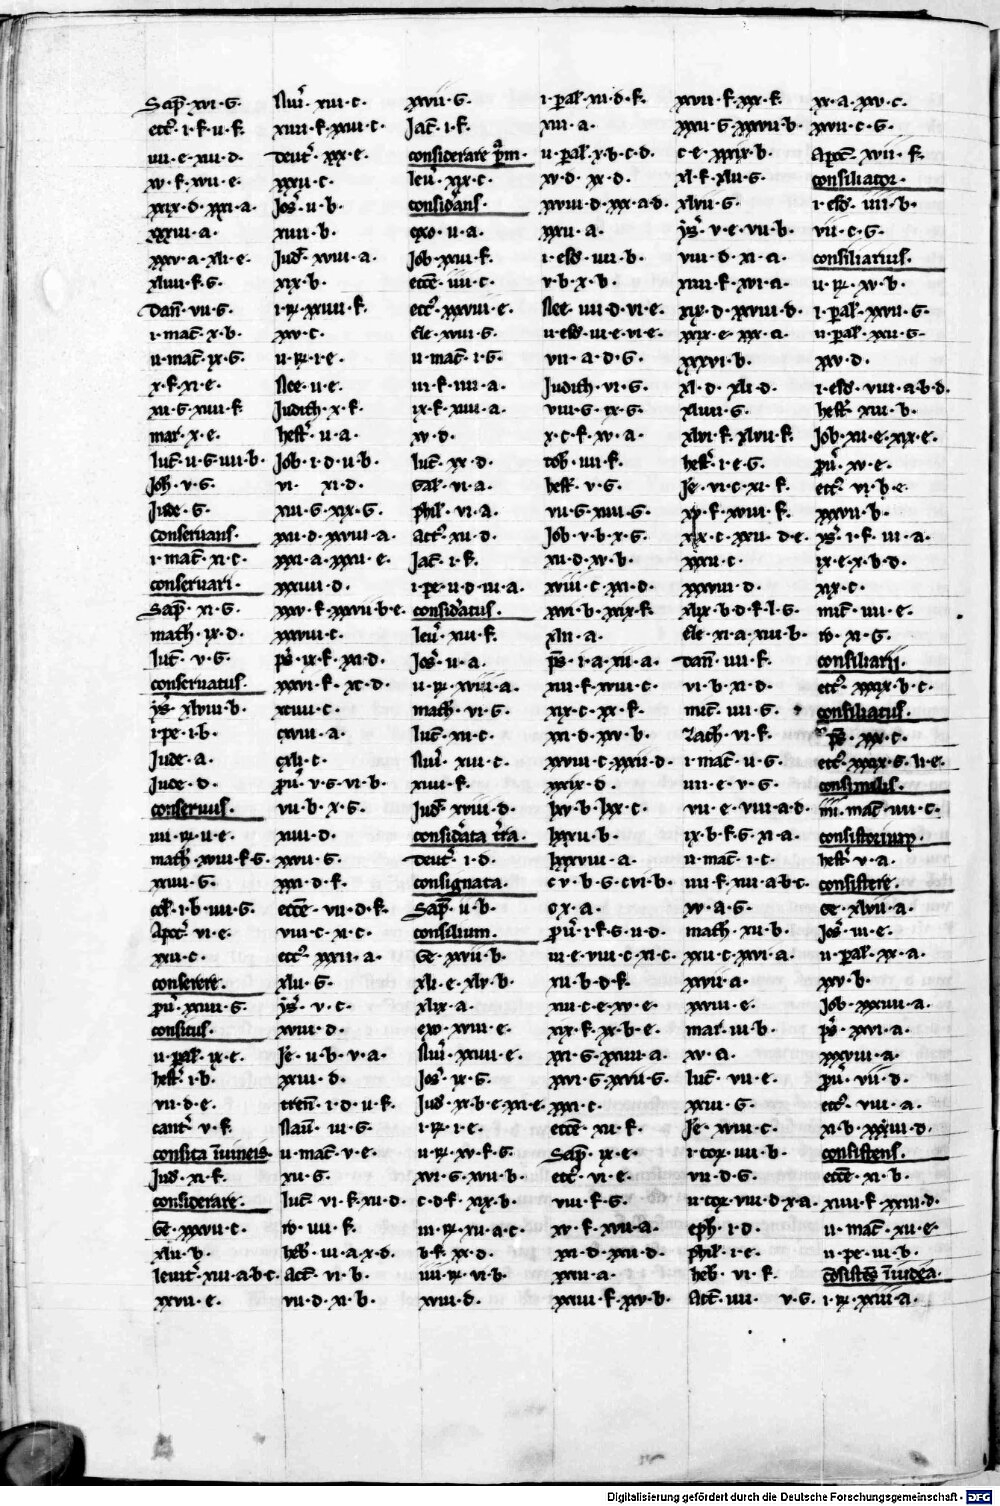 Sap̄· xvi· G·
ecc̄ꝰ· i· f· ii· f·
iiii· e· xiii· d·
xv· f· xvii· e·
xxix· d· xxxi· a·
xxxiii· a·
xxxv· a· xli· e·
xliiii· f· G·
dan̄· vii· G·
i· mac̄· x· b·
ii· mac̄· ix· G·
x· f· xi· e·
xii· G· xiiii· f·
mar̄· x· e·
luc̄· ii· G· iiii· b·
Joh̄· v· G·
Jude· G·
conseruans·
i· mac̄· xi· c·
conseruari·
Sap̄· xi· G·
math̄· ix· d·
luc̄· v· G·
conseruatus·
ys̄· xlviii· b·
i· pe· i· b·
Jude· a·
Jude· d·
conseruus·
math̄· xviii· f· G·
xxiiii· G·
col̄· i· b· iiii· G·
Apoc̄· vi· e·
xxii· c·
conserere·
consitus·
ii· pal̄· ix· e·
hest̄· i· b·
vii· d· e·
cant̄· v· f·
Jud̄· xi· f·
considerare·
Ge· xxxvii· c·
xlii· b·
leuit̄· xiii· a· b· c·
xxvii· e·
Nūi· xiii· c·
xiiii· f· xxiii· c·
deut̄· xx· e·
xxxii· c·
Jos̄· ii· b·
xviii· b·
Jud̄· xviii· a·
xix· b·
xxv· c·
Nee· ii· e·
Judith· x· f·
hest̄· ii· a·
Job· i· d· ii· b·
vi· xi· d·
xiii· G· xix· G·
xxii· d· xxviii· a·
xxxi· a· xxxii· e·
xxxiiii· d·
xxxv· f· xxxvii· b· e·
xxxviii· c·
ps̄· ix· f· xxi· d·
xxxvi· f· xc· d·
xciiii· c·
cxviii· a·
cxli· c·
vii· b· x· G·
xiiii· d·
xxvii· G·
xxxi· d· f·
ecce· vii· d· f·
viii· c· xi· c·
ecc̄ꝰ· xxxii· a·
xlii· G·
ys̄· v· c·
xviii· d·
Je· ii· b· v· a·
xxiii· d·
tren̄· i· d· ii· f·
Nau̅· iii· G·
ii· mac̄· v· e·
xii· G·
luc̄· vi· f· xii· d·
ro· iiii· f·
heb̄· iii· a· x· d·
Act̄· vi· b·
vii· d· xi· b·
xxvii· G·
Jac̄· i· f·
leū· xix· c·
exo· ii· a·
Job· xxiii· f·
ecce· iiii· c·
ecc̄ꝰ· xxxviii· e·
Ele· xviii· G·
ii· mac̄· i· G·
iii· f· iiii· a·
ix· f· xiiii· a·
xv· d·
luc̄· xx· d·
Gal· vi· a·
phil̄· vi· a·
act̄ꝰ· xii· d·
Jac̄· i· f·
i· pe· ii· d· iii· a·
leū· xiii· f·
Jos̄· ii· a·
math̄· vi· G·
luc̄· xii· c·
Nūi· xiii· c·
xiiii· f·
Jud̄· xviii· d·
deut̄· i· d·
consignata·
Sap̄· ii· b·
consilium·
Ge· xxvii· b·
xli· e· xlv· b·
xlix· a·
exo· xviii· e·
Nūi· xxiiii· e·
Jos̄· ix· G·
Jud̄· xx· b· e· xxi· e·
xvi· G· xvii· b·
c· d· f· xix· b·
b· f· xx· d·
xviii· d·
i· pal̄· xii· d· f·
xiii· a·
ii· pal̄· x· b· c· d·
xv· d· xx· d·
xxviii· d· xxx· a· d·
xxxii· a·
i· esd̄· iii· b·
v· b· x· b·
Nee· iiii· d· vi· e·
ii· esd̄· iii· e· vi· e·
vii· a· d· G·
Judith· vi· G·
viii· G· ix· G·
x· c· f· xv· a·
tob̄· iiii· f·
hest̄· v· G·
vii· G· xiiii· G·
Job· v· b· x· G·
xii· d· xv· b·
xviii· c· xxi· d·
xxvi· b· xxix· f·
xlii· a·
ps̄· i· a· xii· a·
xiii· f· xviii· c·
xix· c· xx· f·
xxi· d· xxv· b·
xxviii· c· xxxii· d·
xxxix· d·
lxv· b· lxx· c·
lxxxii· b·
lxxxviii· a·
cv· b· G· cvi· b·
cx· a·
pū· i· f· G· ii· d·
iii· e· viii· c· xi· c·
xii· b· d· f·
xiii· c· e· xv· e·
xix· f· xx· b· e·
xxi· G· xxiiii· a·
xxvi· G· xxvii· G·
xxxi· c·
ecce· xii· f·
Sap̄· ix· e·
ecc̄ꝰ· vi· e·
viii· f· G·
xv· f· xvii· a·
xxi· d· xxii· d·
xxiii· a·
xxiiii· f· xxv· b·
xxvii· f· xxx· f·
xxxii· G· xxxvii· b·
c· e· xxxix· b·
xl· f· xlii· G·
xlvii· G·
ys̄· v· e· vii· b·
viii· d· xi· a·
xiiii· f· xvi· a·
xix· d· xxviii· d·
xxix· e· xxx· a·
xxxvi· b·
xl· d· xli· d·
xliiii· G·
xlvi· f· xlvii· f·
hest̄· i· e· G·
Je· vi· c· xi· f·
xv· f· xviii· f·
xix· c· xxii· d· e·
xxxii· c·
xxxviii· d·
xlix· b· d· f· l· G·
Ele· xi· a· xiii· b·
dan̄· iiii· f·
vi· b· xi· d·
mic̄· iiii· G·
Zach̄· vi· f·
i· mac̄· ii· G·
iiii· e· v· G·
vii· e· viii· a· d·
ix· b· f· G· xi· a·
ii· mac̄· i· c·
iiii· f· xiii· a· b· c·
xv· a· G·
math̄· xii· b·
xxii· c· xxvi· a·
xxvii· a·
xxviii· e·
mar̄· iii· b·
xv· a·
luc̄· vii· e·
xxiii· G·
Je· xviii· c·
i· cor̄· iiii· b·
vii· d· G·
ii· cor̄· viii· d· x· a·
eph̄· i· d·
phil̄· i· e·
heb̄· vi· f·
Act̄· iiii· v· G·
xx· a· xxv· c·
xxvii· c· G·
Apoc̄· xvii· f·
consiliator·
i· esd̄· iiii· b·
vii· c· G·
consiliarius·
i· pal̄· xxvii· G·
ii· pal̄· xxii· G·
xxv· d·
i· esd̄· viii· a· b· d·
hest̄· xiii· b·
Job· xii· e· xix· e·
pū· xv· e·
ecc̄ꝰ· vi· b· e·
xxxvii· b·
ys̄· i· f· iii· a·
ix· e· x· b· d·
xix· c·
mic̄· iiii· e·
ro· xi· G·
consiliarij·
ecc̄ꝰ· xxxix· b· c·
consiliatus·
ps̄· xxx· c·
consimilis·
iii· mac̄· iiii· c·
hest̄· v· a·
consistere·
Ge· xlvii· a·
Jos̄· iii· e·
ii· pal̄· xx· a·
xxv· b·
Job· xxxiii· a·
ps̄· xxvi· a·
xxxviii· a·
pū· vii· d·
ecc̄ꝰ· viii· a·
xi· b· xxxiii· d·
consistens·
ecce· xi· b·
xiiii· f· xxiii· d·
ii· mac̄· xii· e·
ii· pe· iii· b·
Digitalisierung gefördert durch die Deutsche Forschungsgemeinschaft - DFG